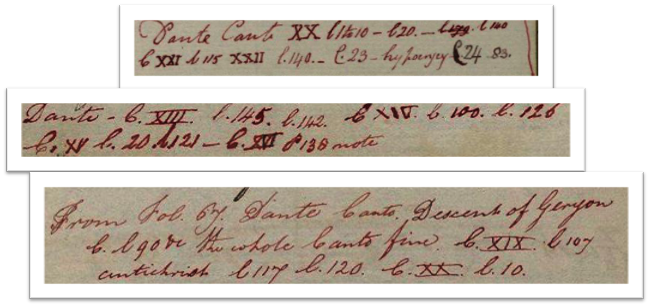 Dante Canto XX l 1to10 - l 20. - l. 140
C XXI l 115 XXII l.140. - C.23 - hypocrisy C.24 83.
Dante - C. XIII. l. 145. l. 142. C XIV. l. 100. l. 126
C. XV l. 20 l. 121 - C. XVI P 138 note
From Fol. 67. Dante Canto. Descent of Geryon
C. l 90 &c the whole Canto fine. C. XIX. l 107
antichrist l 117 l. 120. C. XX. l. 10.